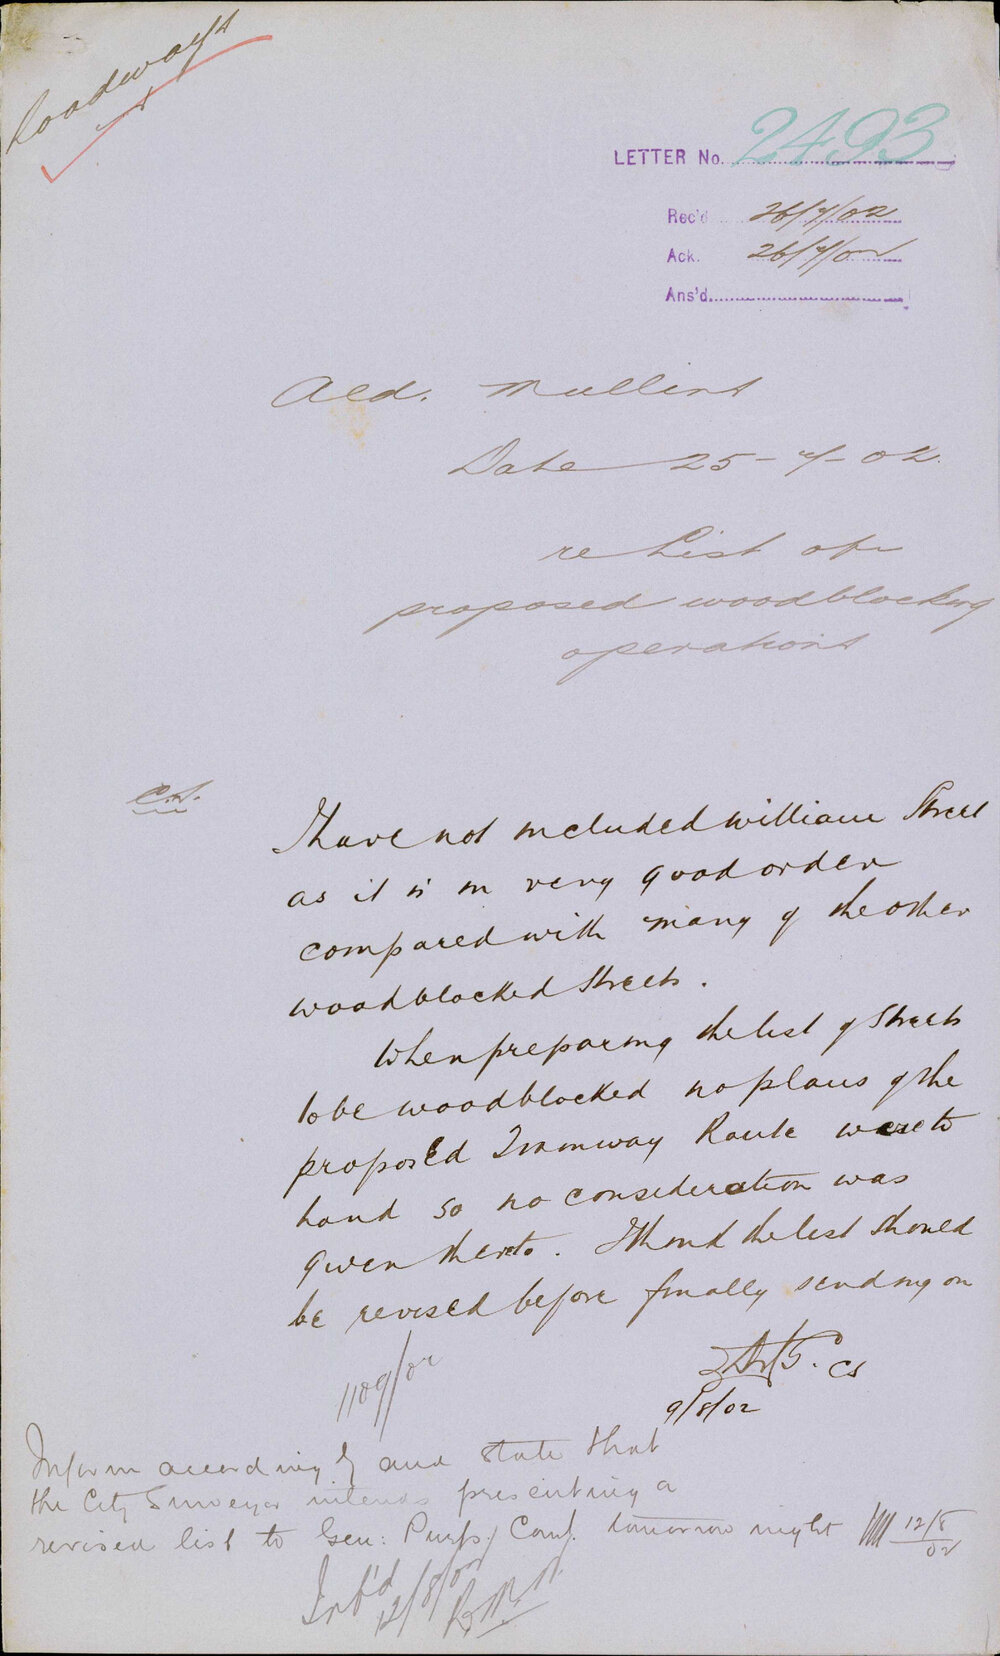 Roadways
LETTER No. 2493
Rec'd 26/7/02
Ack. 26/7/02
Ans'd
Ald. Mullins
Date 25-7-02.
re List of
proposed woodblocking
operations
C.S.
I have not included William Street
as it is in very good order
compared with many of the other
woodblocked Streets.
When preparing the list of Streets
to be woodblocked no plans of the
proposed Tramway Route were to
hand so no consideration was
given thereto. I think the list should
be revised before finally sending on
CS
9/8/02
1109/02
Inform accordingly and state that
the City Surveyor intends presenting a
revised list to Gen: Purps. Com. tomorrow night 12/8
02
Inf'd
12/8/02